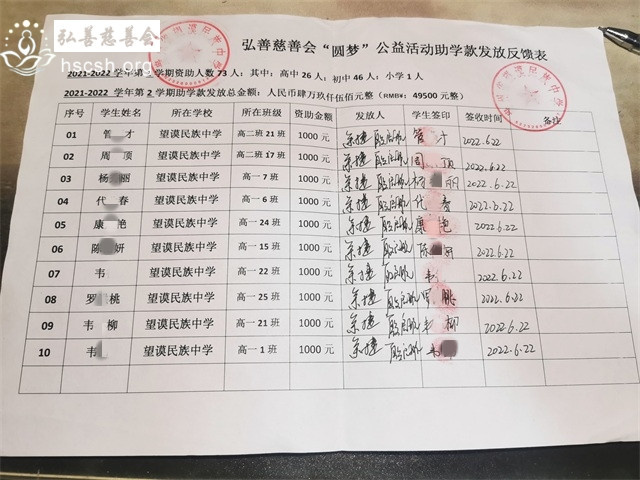 弘善慈善会
hscsh.org
弘善慈善会“圆梦”公益活动助学款发放反馈表
2021-2022 学年第2学期资助人数 73 人；其中：高中 26 人；初中 46 人；小学 1 人
2021-2022 学年第 2 学期助学款发放总金额：人民币肆万玖仟伍佰元整（RMB¥：49500 元整）
序号 学生姓名 所在学校 所在班级 资助金额 发放人 学生签印 签收时间 备注
01 管 才 望谟民族中学 高二班 21 班 1000 元 管 2022.6.22
02 周 顶 望谟民族中学 高二班 17 班 1000 元 周 顶 2022.6.22
03 杨 丽 望谟民族中学 高一 7 班 1000 元 杨 丽 2022.6.22
04 代 春 望谟民族中学 高一 6 班 1000 元 代 春 2022.6.22
05 康 艳 望谟民族中学 高一 24 班 1000 元 康 艳 2022.6.22
06 陈 妍 望谟民族中学 高一 15 班 1000 元 陈 妍 2022.6.22
07 韦 望谟民族中学 高一 22 班 1000 元 韦 2022.6.22
08 罗 桃 望谟民族中学 高一 25 班 1000 元 罗 桃 2022.6.22
09 韦 柳 望谟民族中学 高一 21 班 1000 元 韦 柳 2022.6.22
10 韦 望谟民族中学 高一 1 班 1000 元 韦 2022.6.22